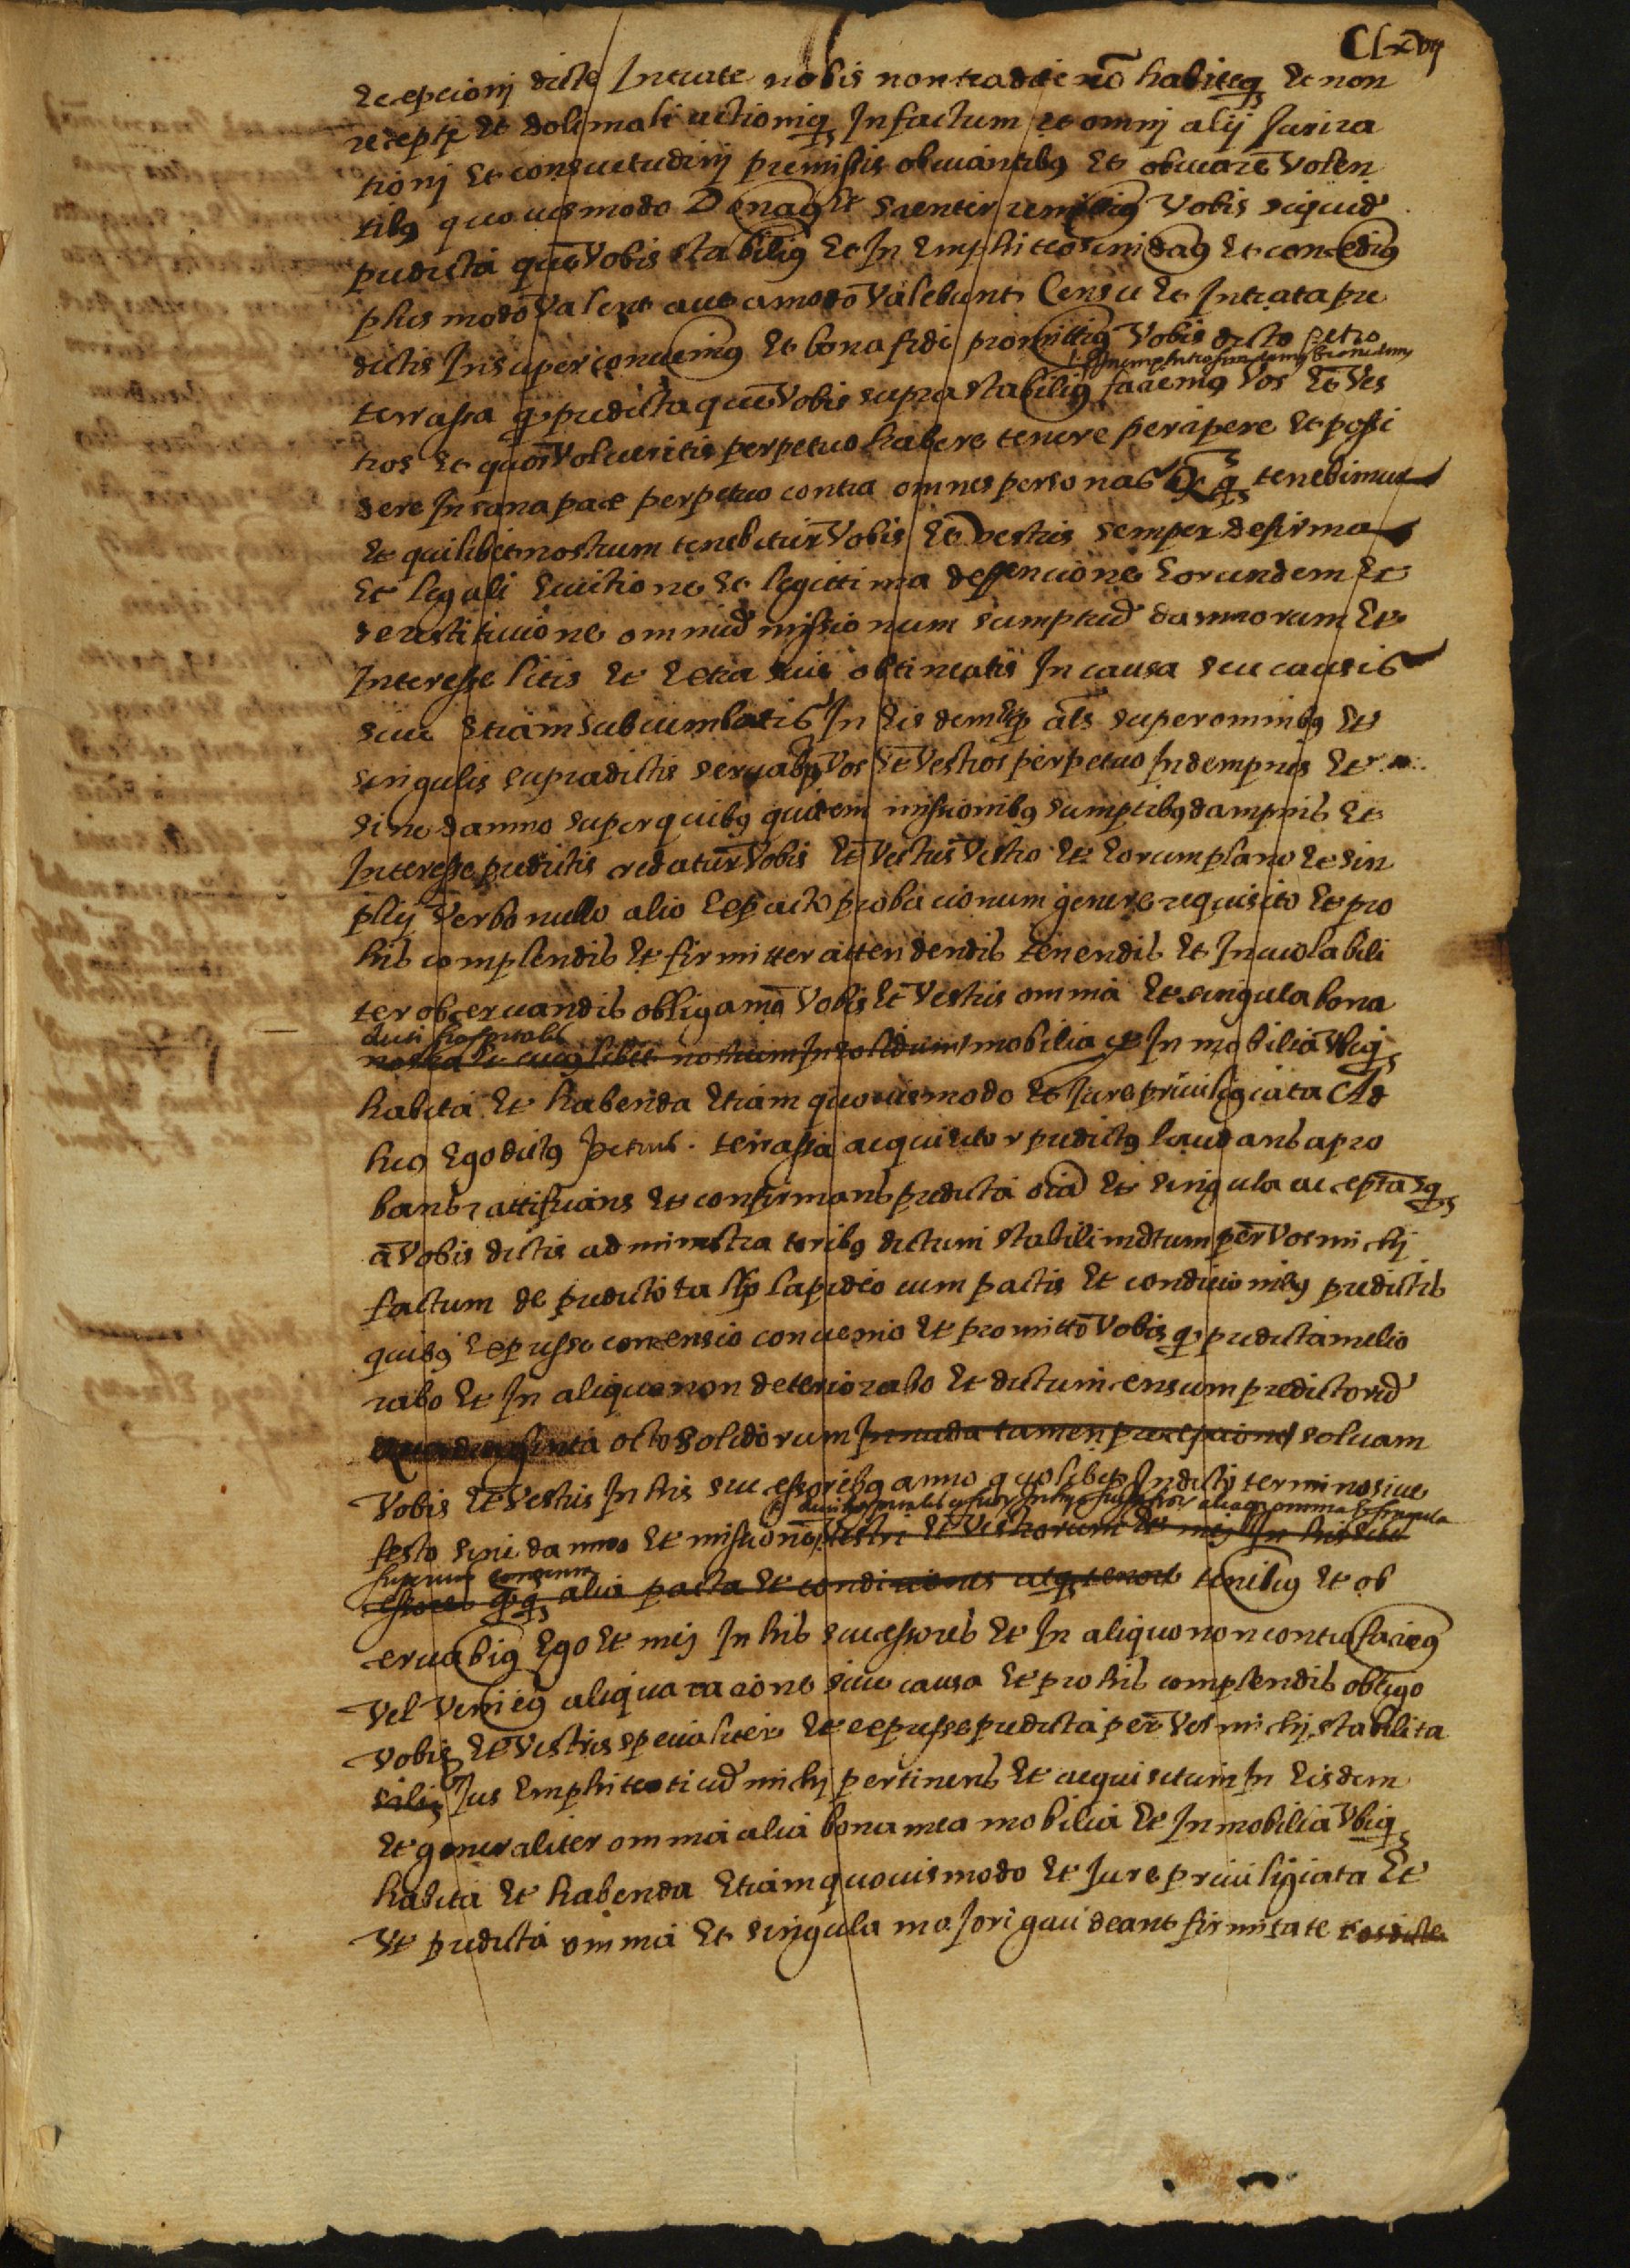 Clxvij
Excepcionj dicte Intrate nobis non tradite nõ habiteq; Et non
recepte Et doli mali actioniq; Infactum et omnj alij Juri ra
tionj Et consuetudinj premissis obuiantibus Et obuiare volen
tibus quouismodo Donamus Et scienter remittimus Vobis siquid
predicta que Vobis stabilimus Et In Emphiteosim damus Et concedimus
plus modo Valent aut amodo Valebunt Censu Et Intrata pre
dictis Insuper conuenimus Et bonafide promittimus Vobis dicto petro
terrassa q predicta que Vobis supra stabilimus faciemus Vos Et Ves
tros Et quos Volueritis perpetuo habere tenere percipere Et possi
dere In sana pace perpetuo contra omnes personas tenebimur
Et quilibet nostrum tenebitur Vobis Et vestris semper de firma
Et legali Euictione Et legittima deffencione Eorundem Et
de restitucione omniũ missionum sumptuũ damnorum Et
Interesse litis Et Extra siue obtineatis In causa seu causis
siue Etiam subcumbatis In Eisdem als super omnibus Et
singulis supradictis seruabimus Vos Et Vestros perpetuo Indempnes Et
sine damno super quibus quidem missionibus sumptibus dampnis Et
Interesse predictis credatur Vobis Et Vestris Vestro Et Eorum plano Et sin
plij Verbo nullo alio Expacto probacionum genere requisito Et pro
his complendis Et firmitter attendendis tenendis Et Inuiolabili
ter obseruandis obligamus Vobis Et Vestris omnia Et singula bona
dicti hospitalis
nostra Et cuiuslibet nostrum In solidum mobilia et In mobilia Vbiq;
habita Et habenda Etiam quouismodo Et Jure priuilegiata Ad
hec Ego dictus Petrus terrassa acquisitor predictus laudans apro
bans rattificans Et confirmans predicta oia Et singula acceptansq;
a Vobis dictis administratoribus dictum stabilimentum per Vos michj
factum de predicto lapideo cum pactis Et condicionibus predictis
quibus Expresse concensio conuenio Et promitto Vobis q predicta melio
rabo Et In aliquo non deteriorabo Et dictum censum predictorũ
Quadraginta octo Solidorum In nuda tamen percepcione soluam
Vobis Et Vestris In his successoribus anno quolibet In dicto termino siue
festo sine damno Et missione Vestri Et Vestrorum Et mei In his suc
cessores alia pacta Et condiciones tenebimus Et ob
eruabimus Ego Et mei In his successores Et In aliquo non contra faciemus
Vel Veniemus aliqua racione siue causa Et pro his complendis obligo
Vobis Et Vestris specialiter Et expresse predicta per Vos michj stabilita
Jus Emphiteoticũ michj pertinens Et acquisitum In Eisdem
Et generaliter omnia alia bona mea mobilia Et In mobilia Vbiq;
habita Et habenda Etiam quouismodo Et Jure priuilegiata Et
Vt predicta omnia Et singula majori gaudeant firmitate